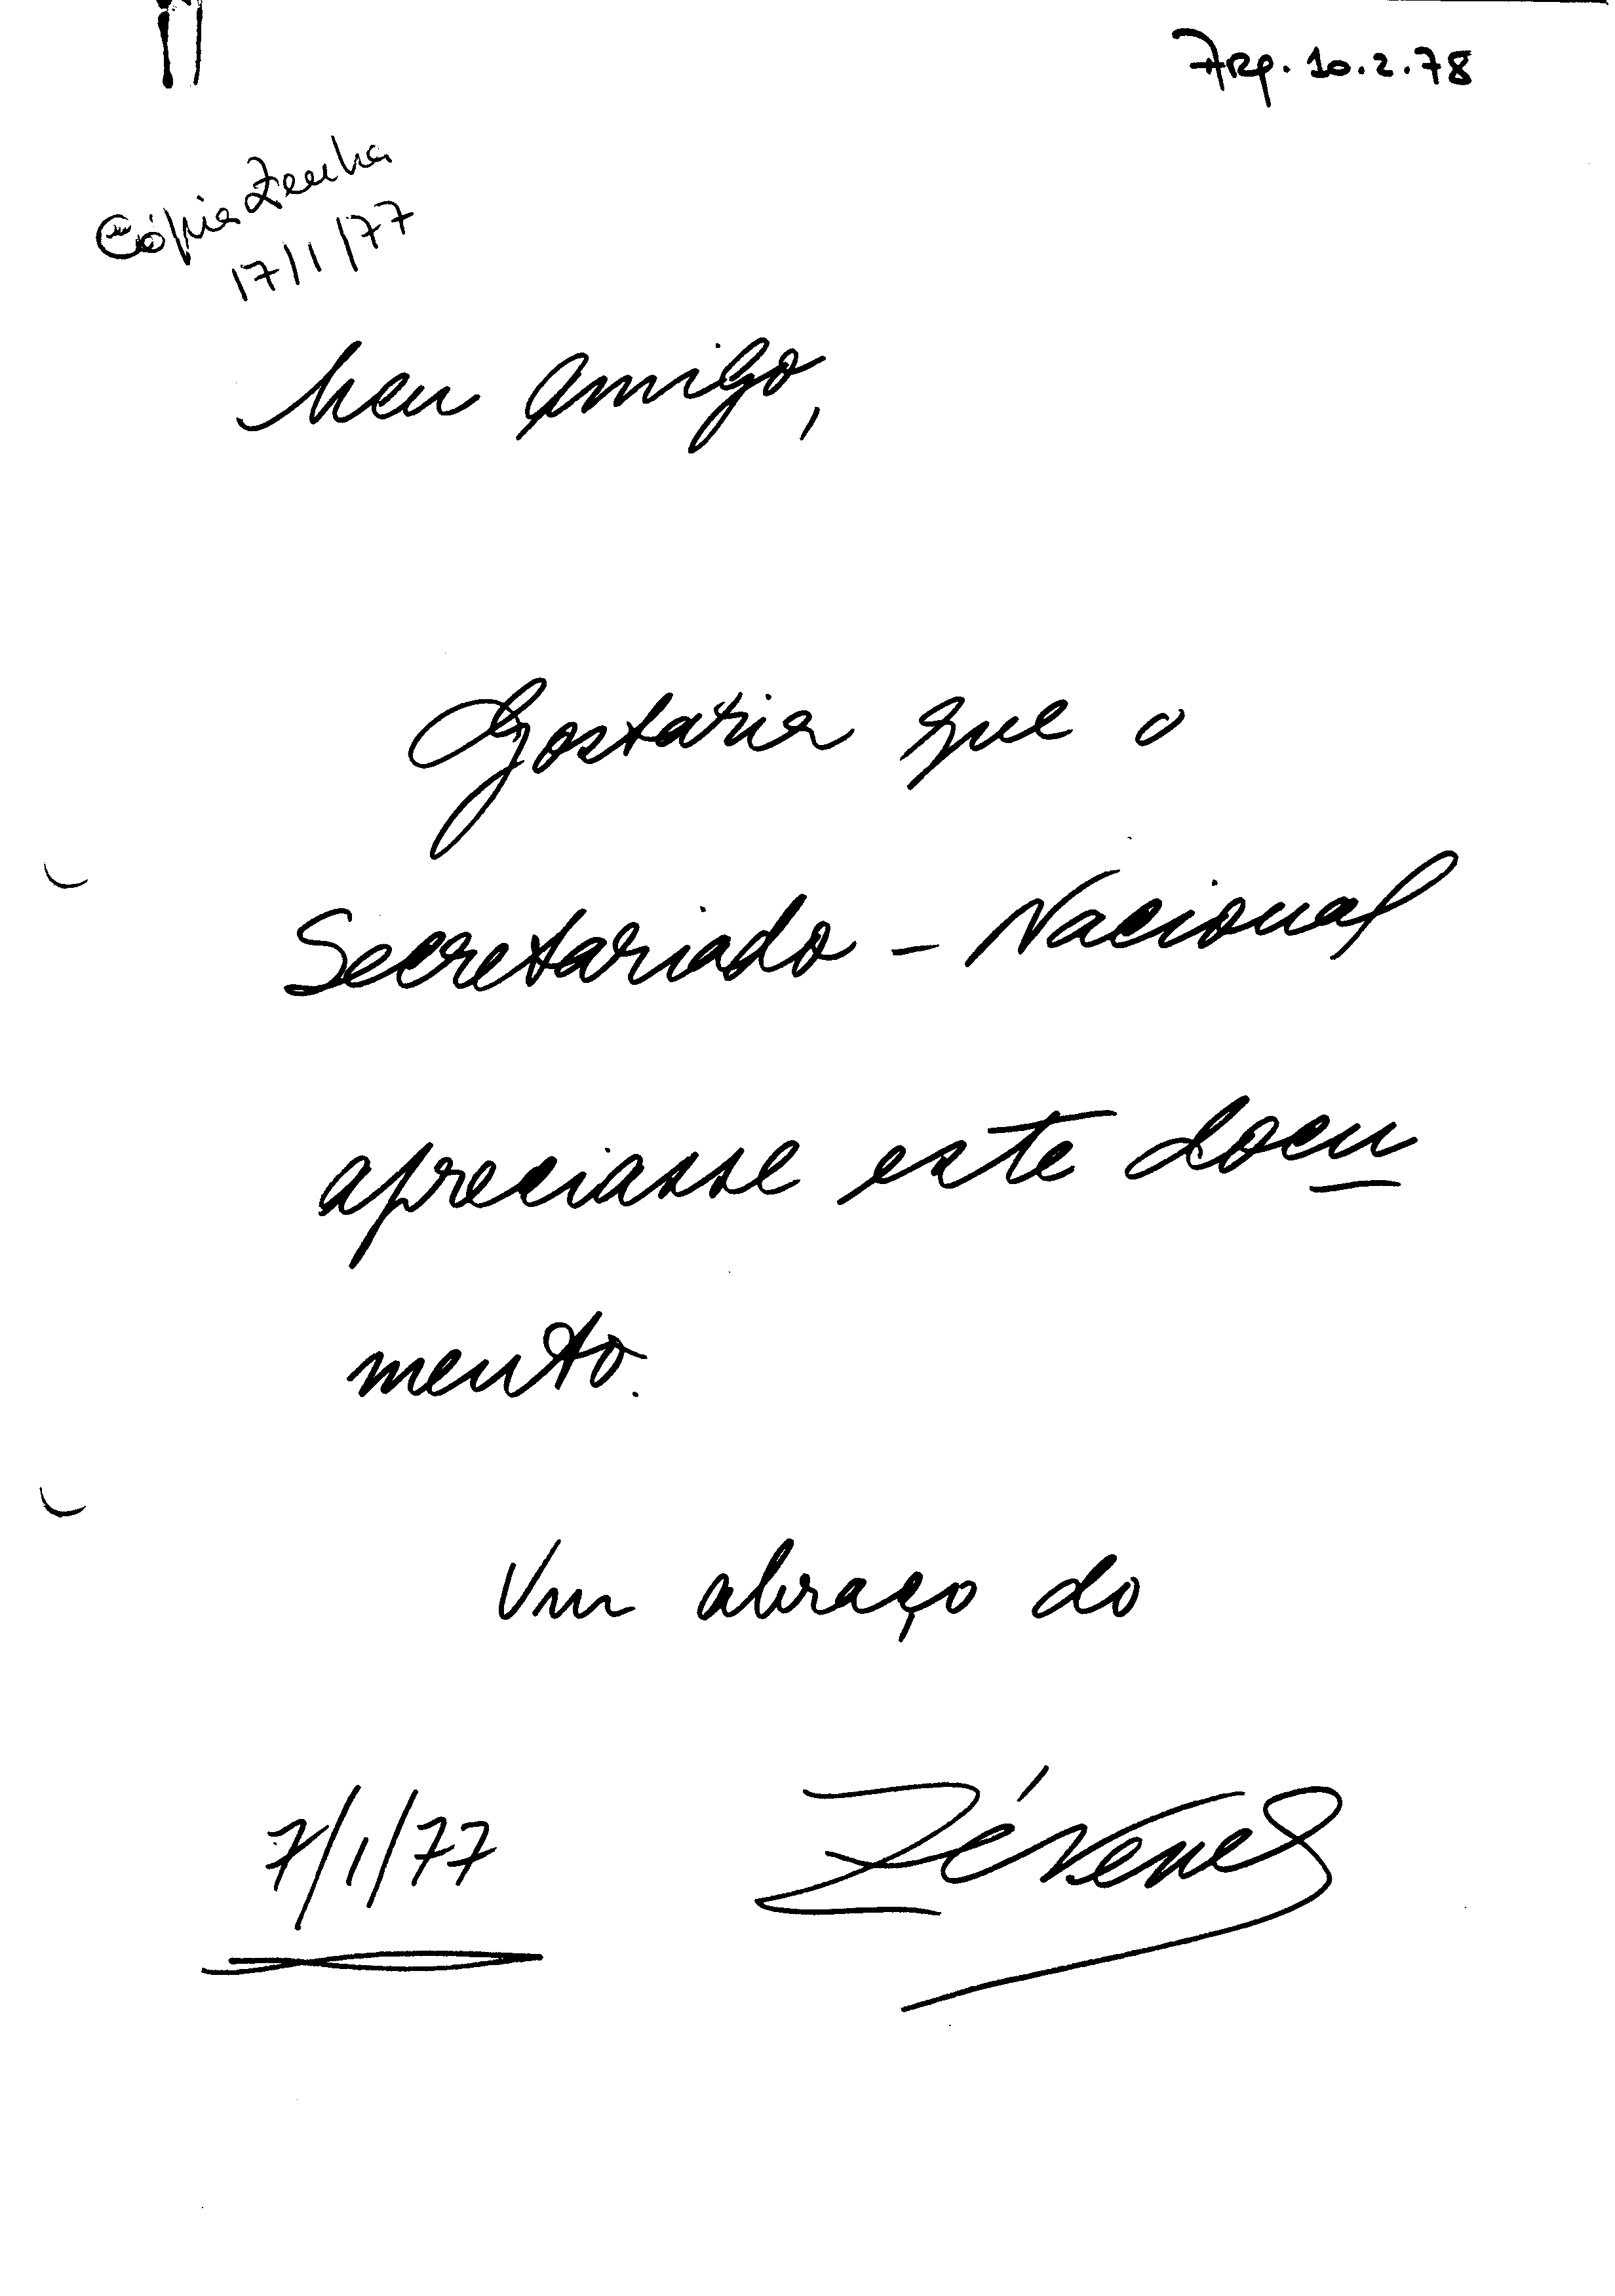 Arq. 10.2.78
Cópia Zenha
17/1/77
Meu amigo,
Gostaria que o
Secretariado - Nacional
apreciasse este docu
mento.
Um abraço do
7/1/77